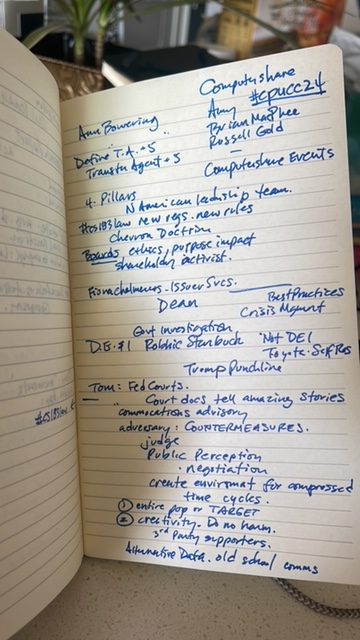 Computershare
#cpucc24
Ann Bowering
Amy
Brian MacPhee
Russell Gold
Define T.A. + S
Transfer Agent + S
Computershare Events
4 Pillars
N American leadership team.
law new regs. new rules
Chevron Doctrine
Boards, ethics, purpose impact
shareholder activist.
Issuer Svcs.
Dean
Best Practices
Crisis Mgmnt
Govt Investigation
D.E.&I Robbie Starbuck "Not DEI
Toyota
Trump Punchline
Tom: Fed Courts.
Court docs tell amazing stories
advisory
adversary: COUNTERMEASURES.
judge
Public Perception
· negotiation
create envirmat for compressed
time cycles.
① entire pop or TARGET
② creativity. Do no harm.
3rd Party supporters.
Alternative Data. old school comms